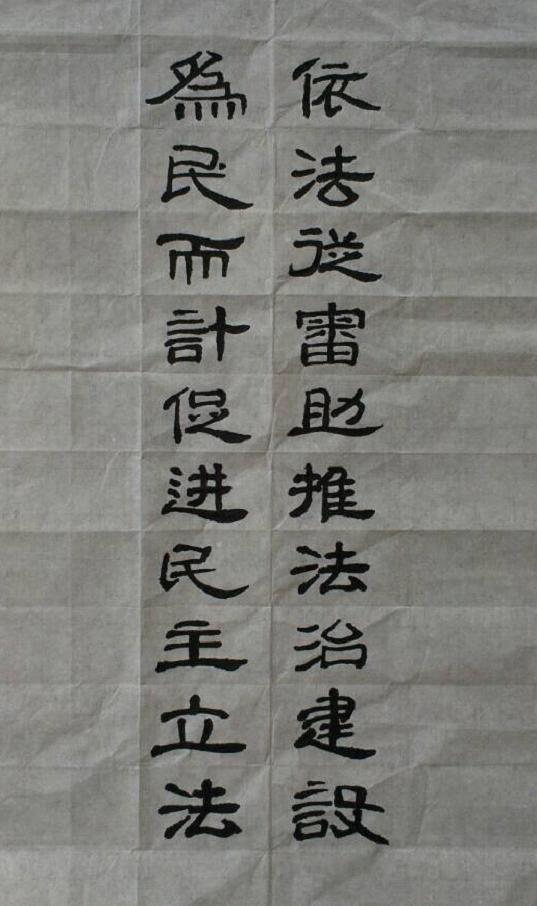 依法從審助推法治建設
為民而計促进民主立法